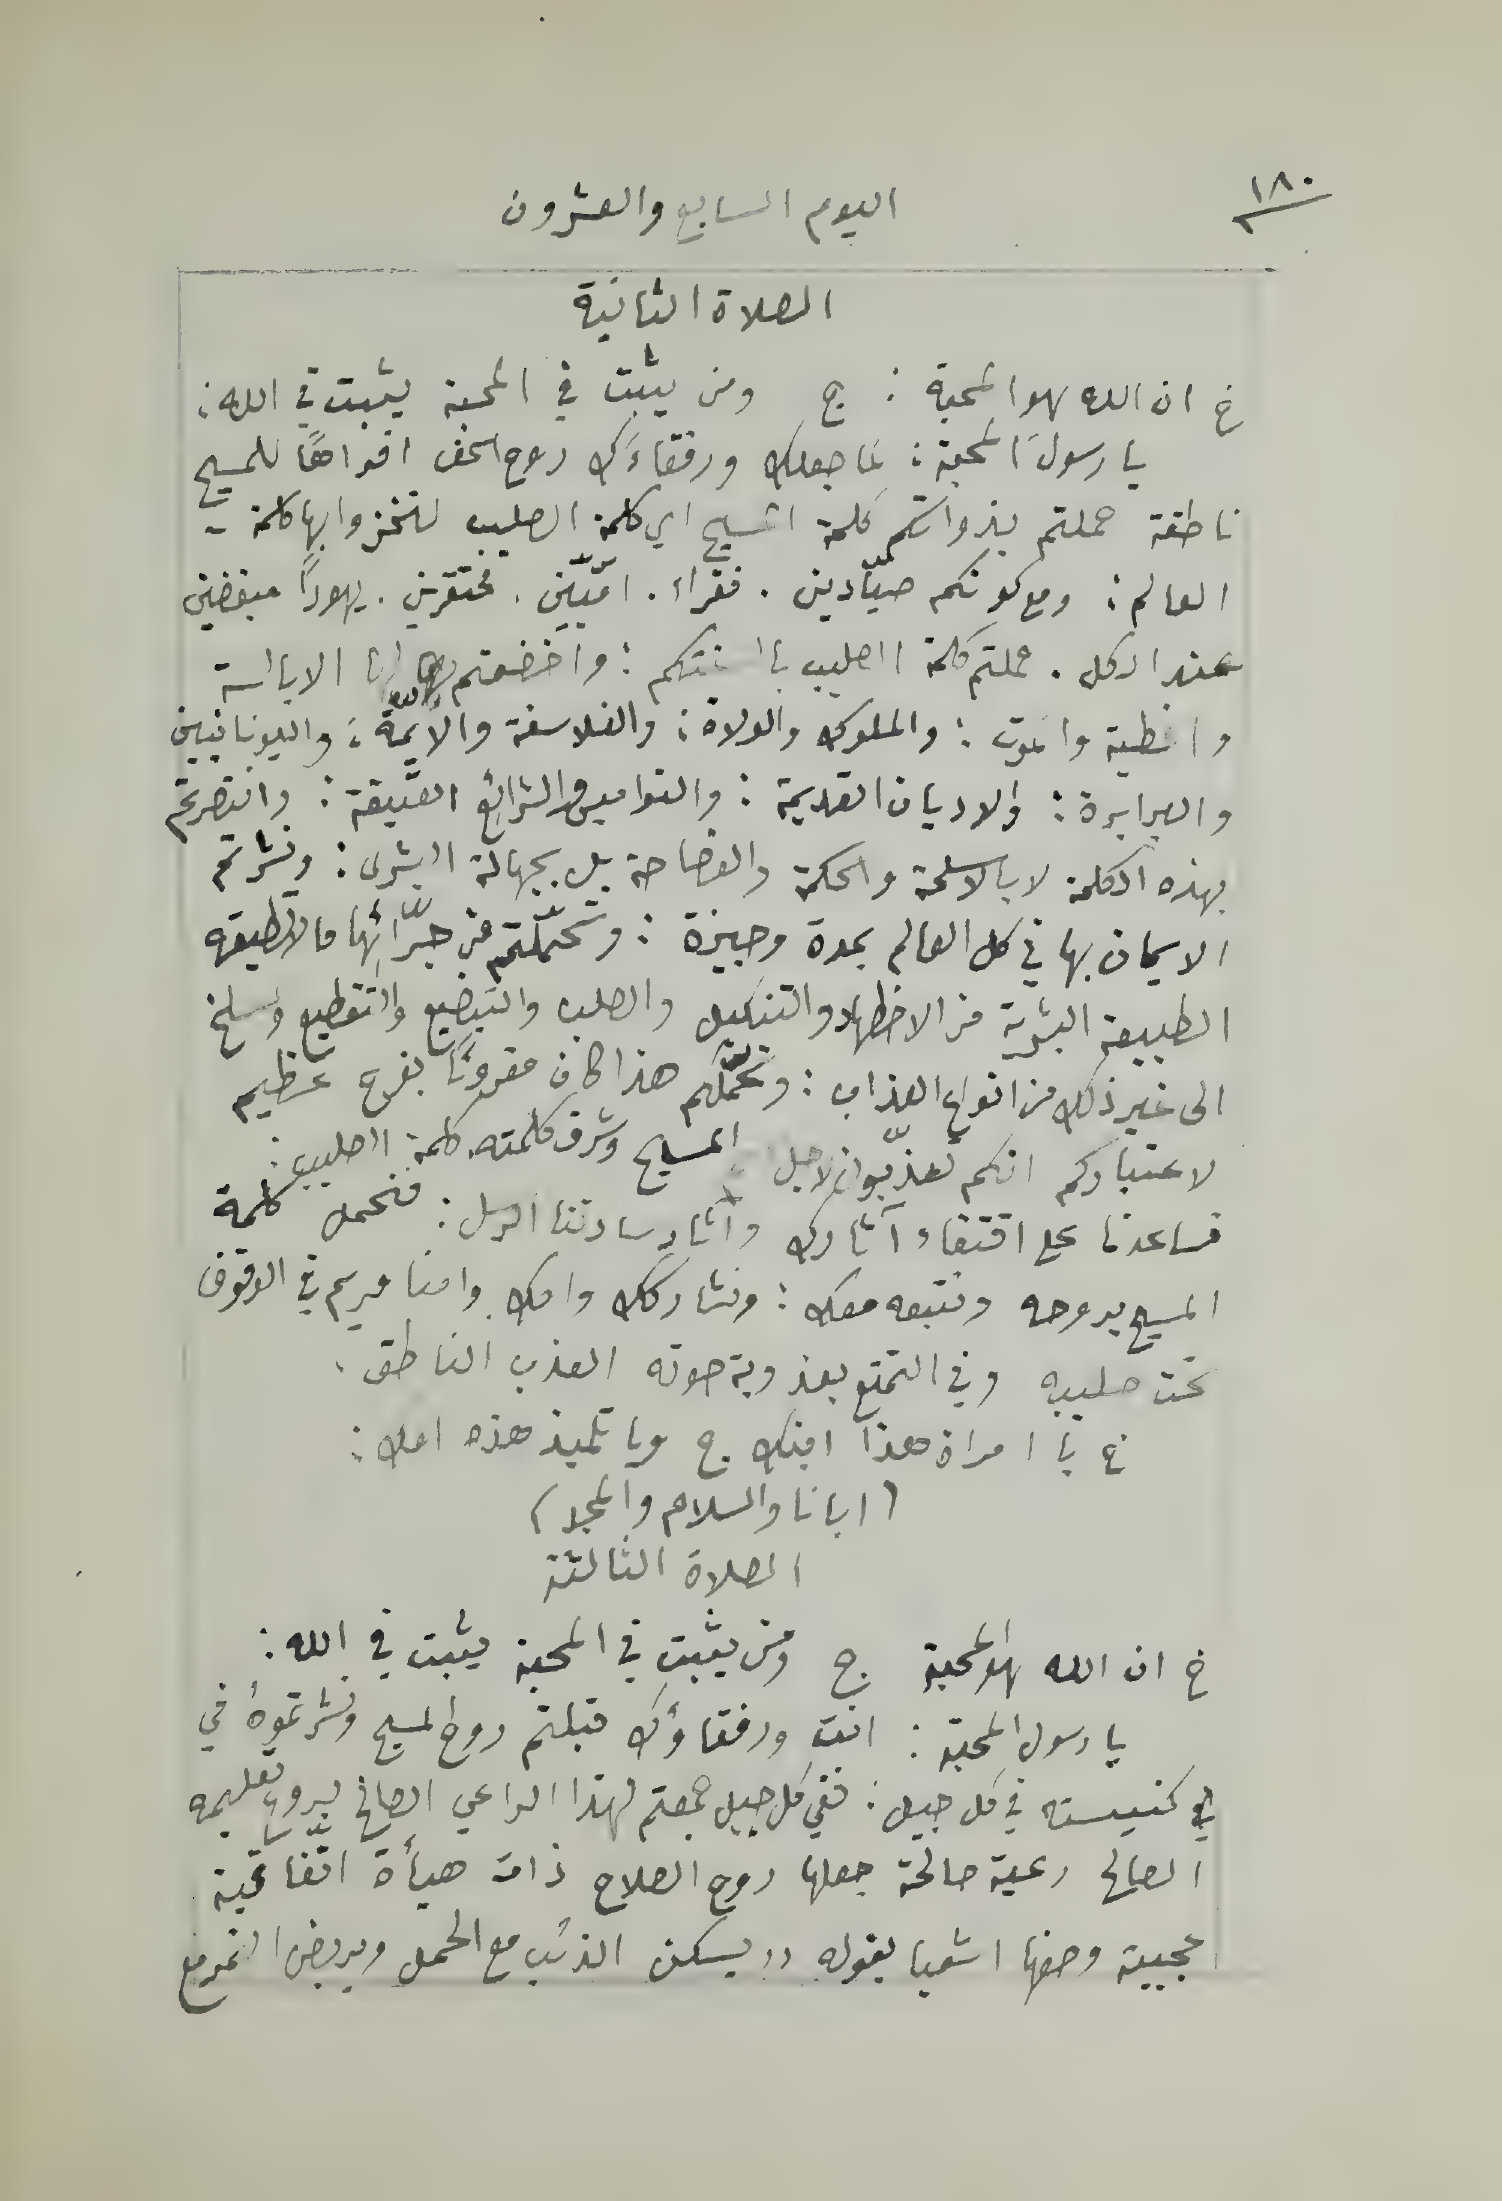 ١٨٠
اليوم السابع والعشرون
الصلاة الثانية
خ ان الله هو المحبة : ج ومن يثبت في المحبة يثبت في الله :
يا رسول المحبة : لما جعلك ورفقاءَك روح الحق افواهًا للمسيح
ناطقة حملتم بذواتكم كلمة المسيح اي كلمة الصليب لتخزوا بها كلمة
العالم : ومع كونكم صيّادين . فقراء . امّيّين . محتقرين . يهودًا مبغضين
عند الكل . حملتم كلمة الصليب بالسنتكم : واخضعتم لها الابالسة
والخطية والموت : والملوك والولاة : والفلاسفة والأيمّة : واليونانيين
والبرابرة : والاديان القديمة : والنواميس والشرائع العتيقة : وانتصرتم
بهذه الكلمة لا بالاسلحة والحكمة والفصاحة بل بجهالة البشرى : ونشرتم
الايمان بها في كل العالم بمدة وجيزة : وتحمّلتم من جرّائها ما لا تطيقه
الطبيعة البشرية من الاضطهاد والتنكيل والصلب والتبضيع والتقطيع والسلخ
الى غير ذلك من انواع العذاب : وتحمّلكم هذا كان مقرونًا بفرح عظيم
لاعتباركم انكم تعذّبون لاجل المسيح وشرف كلمته كلمة الصليب :
فساعدنا على اقتفاء آثارك وآثار سادتنا الرسل : فنحمل كلمة
المسيح بروحه ونتبعه معك : ونشاركك وامك وامنا مريم في الوقوف
تحت صليبه وفي التمتع بعذوبة صوته العذب الناطق .
خ يا امراة هذا ابنك ج ويا تلميذ هذه امك :
(ابانا والسلام والمجد)
الصلاة الثالثة
خ ان الله هو المحبة ج ومن يثبت في المحبة يثبت في الله :
يا رسول المحبة : انت ورفقاؤك قبلتم روح المسيح ونشرتموهُ في
في كنيسته في كل جيل : ففي كل جيل جمعتم لهذا الراعي الصالح بروح تعليمه
الصالح رعية صالحة جعلها روح الصلاح ذات هيأة اتّفاقية
عجيبة وصفها اشعيا بقوله (( يسكن الذئب مع الحمل ويربض النمر مع